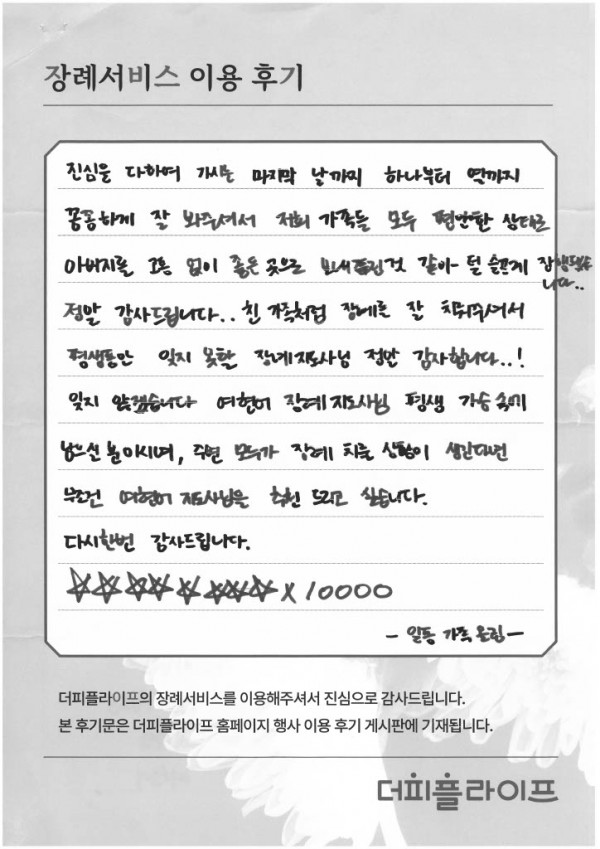 장례서비스 이용 후기
진심을 다하여 가시는 마지막 날까지 하나부터 열까지
꼼꼼하게 잘 봐주셔서 저희 가족들 모두 편안한 상태로
아버지를 고통 없이 좋은 곳으로 보내드린것 같아 덜 슬픈게
니다..
정말 감사드립니다.. 친 가족처럼 장례를 잘 치뤄주셔서
평생동안 잊지 못할 장례지도사님 정말 감사합니다..!
잊지 않겠습니다 여현어 장례지도사님 평생 가슴 속에
남으실 분이시며, 주변 모두가 장례 치를 상황이 생긴다면
무조건 여현어 지도사님을 추천 드리고 싶습니다.
다시한번 감사드립니다.
☆☆☆☆☆☆☆☆ X 10000
- 일동 가족 올림 -
더피플라이프의 장례서비스를 이용해주셔서 진심으로 감사드립니다.
본 후기문은 더피플라이프 홈페이지 행사 이용 후기 게시판에 기재됩니다.
더피플라이프